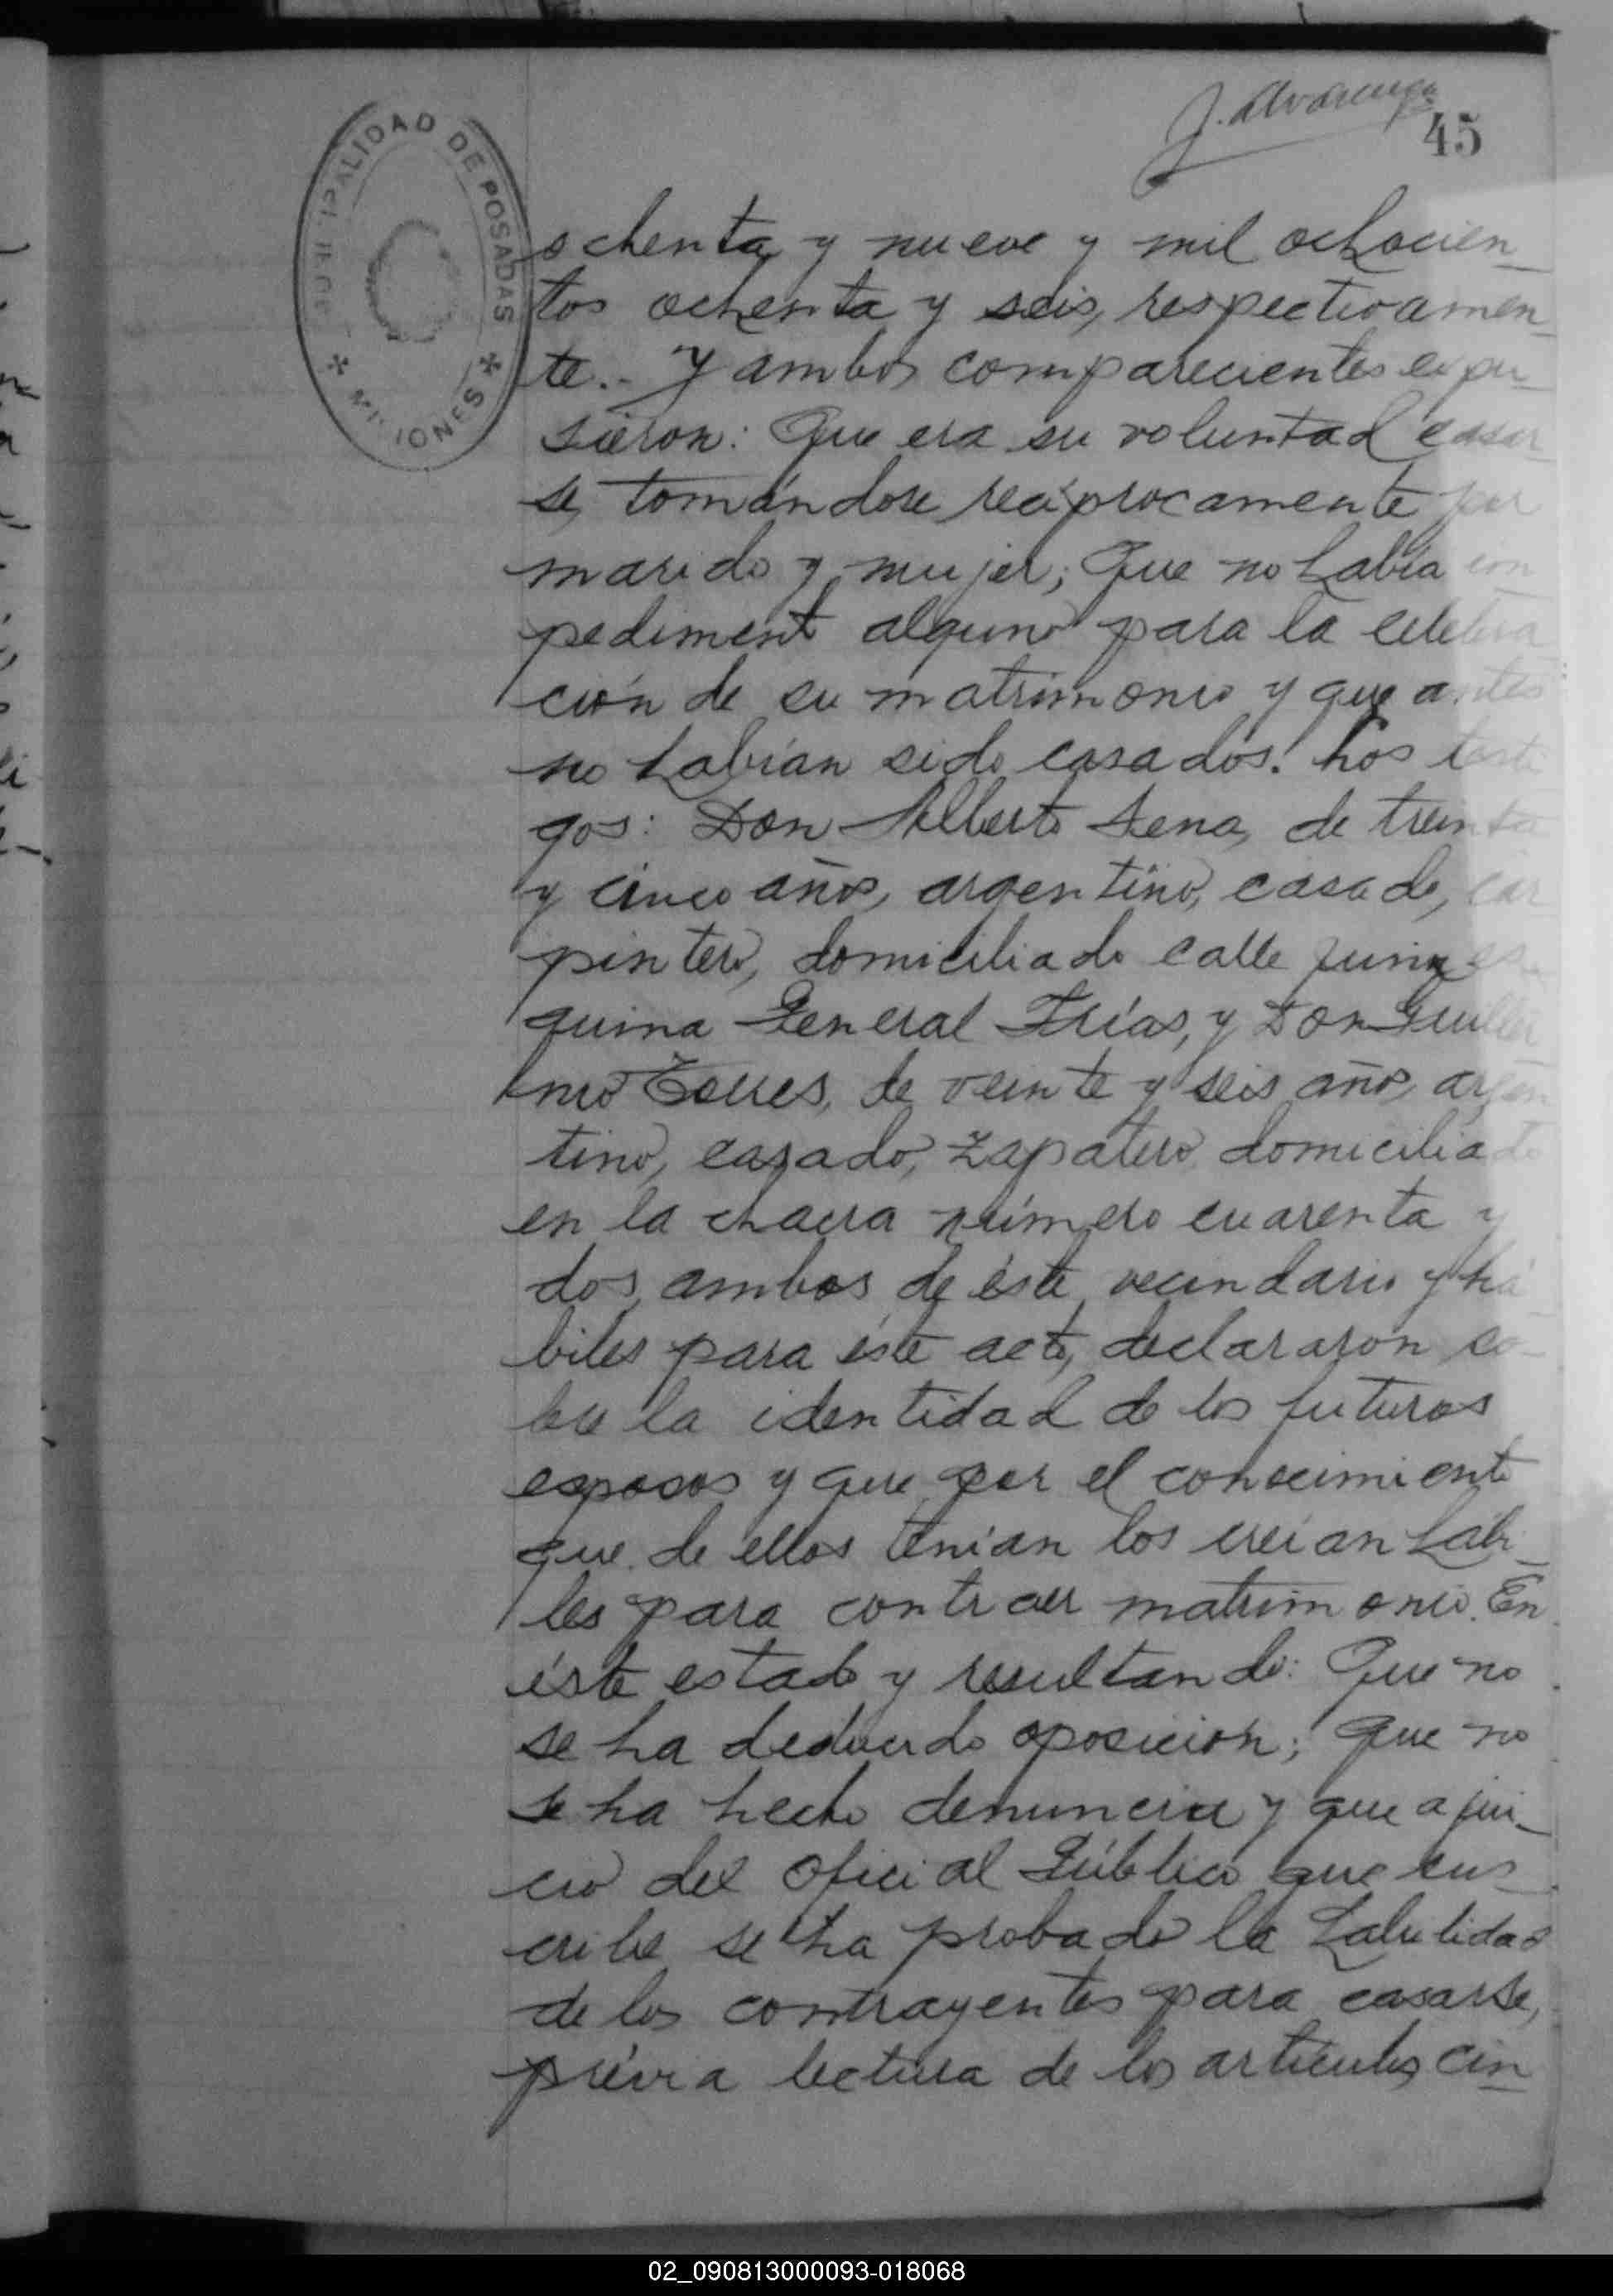 J. Alvarenga
45
MUNICIPALIDAD DE POSADAS
* MISIONES *
ochenta y nueve y mil ochocien_
tos ochenta y seis, respectivamen_
te.- Y ambos comparecientes expu_
sieron: Que era su voluntad casar_
se, tomándose recíprocamente por
marido y mujer; Que no había im_
pediment alguno para la celebra_
ción de su matrimonio y que antes
no habían sido casados. Los testi_
gos: Don Alberto Sena, de treinta
y cinco años, argentino, casado, car_
pintero, domiciliado calle Junin es_
quina General Frías, y Don Guiller_
mo Torres, de veinte y seis años, argen_
tino, casado, zapatero, domiciliado
en la chacra número cuarenta y
dos, ambos de éste vecindario y há_
biles para éste acto, declararon so_
bre la identidad de los futuros
esposos y que por el conocimiento
que de ellos tenían los creían hábi_
les para contraer matrimonio. En
éste estado y resultando: Que no
se ha deducido oposición; Que no
se ha hecho denuncia y que a jui_
cio del Oficial Público que sus_
cribe se ha probado la habilidad
de los contrayentes para casarse,
prévia lectura de los artículos cin_
02_090813000093-018068